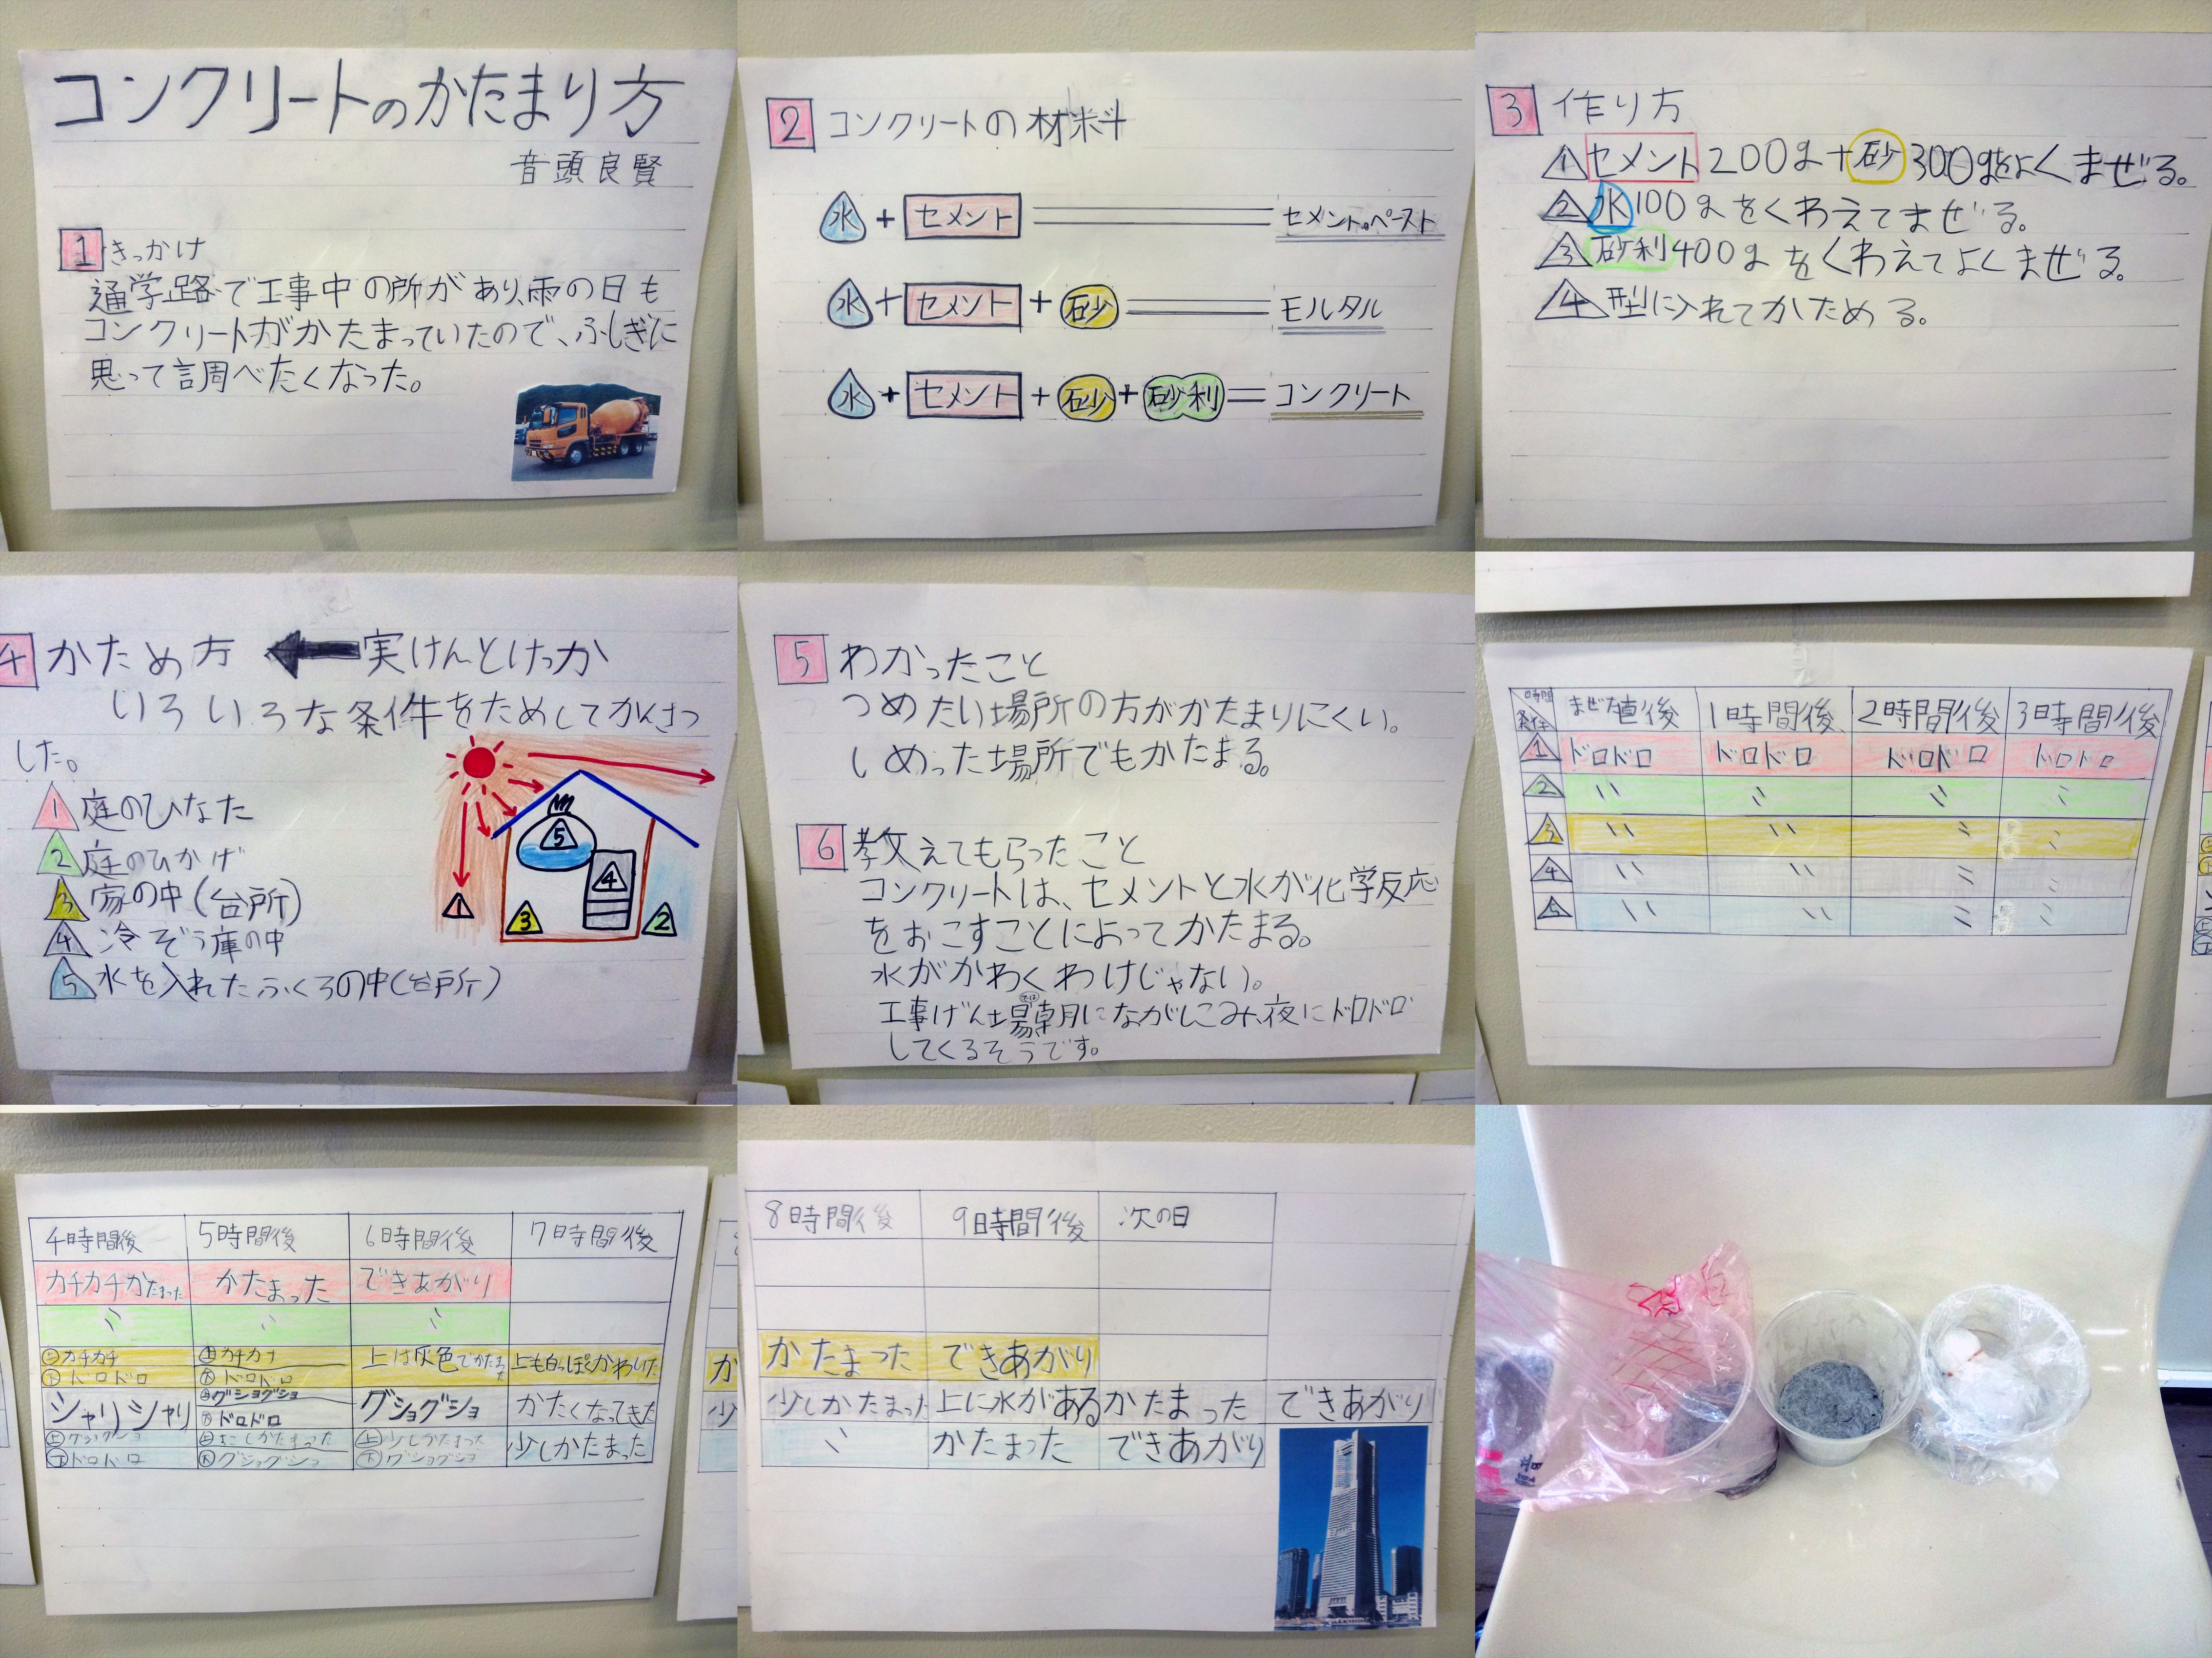 コンクリートのかたまり方
音頭良賢
1 きっかけ
通学路で工事中の所があり、雨の日も
コンクリートがかたまっていたので、ふしぎに
思って調べたくなった。
2 コンクリートの材料
水 + セメント = セメント・ペースト
水 + セメント + 砂 = モルタル
水 + セメント + 砂 + 砂利 = コンクリート
3 作り方
1 セメント200g+砂300gをよくまぜる。
2 水100gをくわえてまぜる。
3 砂利400gをくわえてよくまぜる。
4 型に入れてかためる。
4 かため方 ← 実けんとけっか
いろいろな条件をためしてかんさつ
した。
1 庭のひなた
2 庭のひかげ
3 家の中(台所)
4 冷ぞう庫の中
5 水を入れたふくろの中(台所)
5
4
1
3
2
5 わかったこと
つめたい場所の方がかたまりにくい。
しめった場所でもかたまる。
6 教えてもらったこと
コンクリートは、セメントと水が化学反応
をおこすことによってかたまる。
水がかわくわけじゃない。
工事げん場では朝にながしこみ、夜にドロドロ
してくるそうです。
時間 条件 まぜた直後 1時間後 2時間後 3時間後
1 ドロドロ ドロドロ ドロドロ ドロドロ
2 〃 〃 〃 〃
3 〃 〃 〃 〃
4 〃 〃 〃 〃
5 〃 〃 〃 〃
4時間後 5時間後 6時間後 7日時間後
カチカチかたまった かたまった できあがり
〃 〃 〃
上カチカチ 上カチカチ 上は灰色でかたまった 上も白っぽくかわいた
下ドロドロ 下ドロドロ
シャリシャリ 上グショグショ グショグショ かたくなってきた
下ドロドロ
上グショグショ 上すこしかたまった 上少しかたまった 少しかたまった
下ドロドロ 下グショグショ 下グショグショ
8時間後 9日時間後 次の日
かたまった できあがり
少しかたまった 上に水がある かたまった できあがり
〃 かたまった できあがり